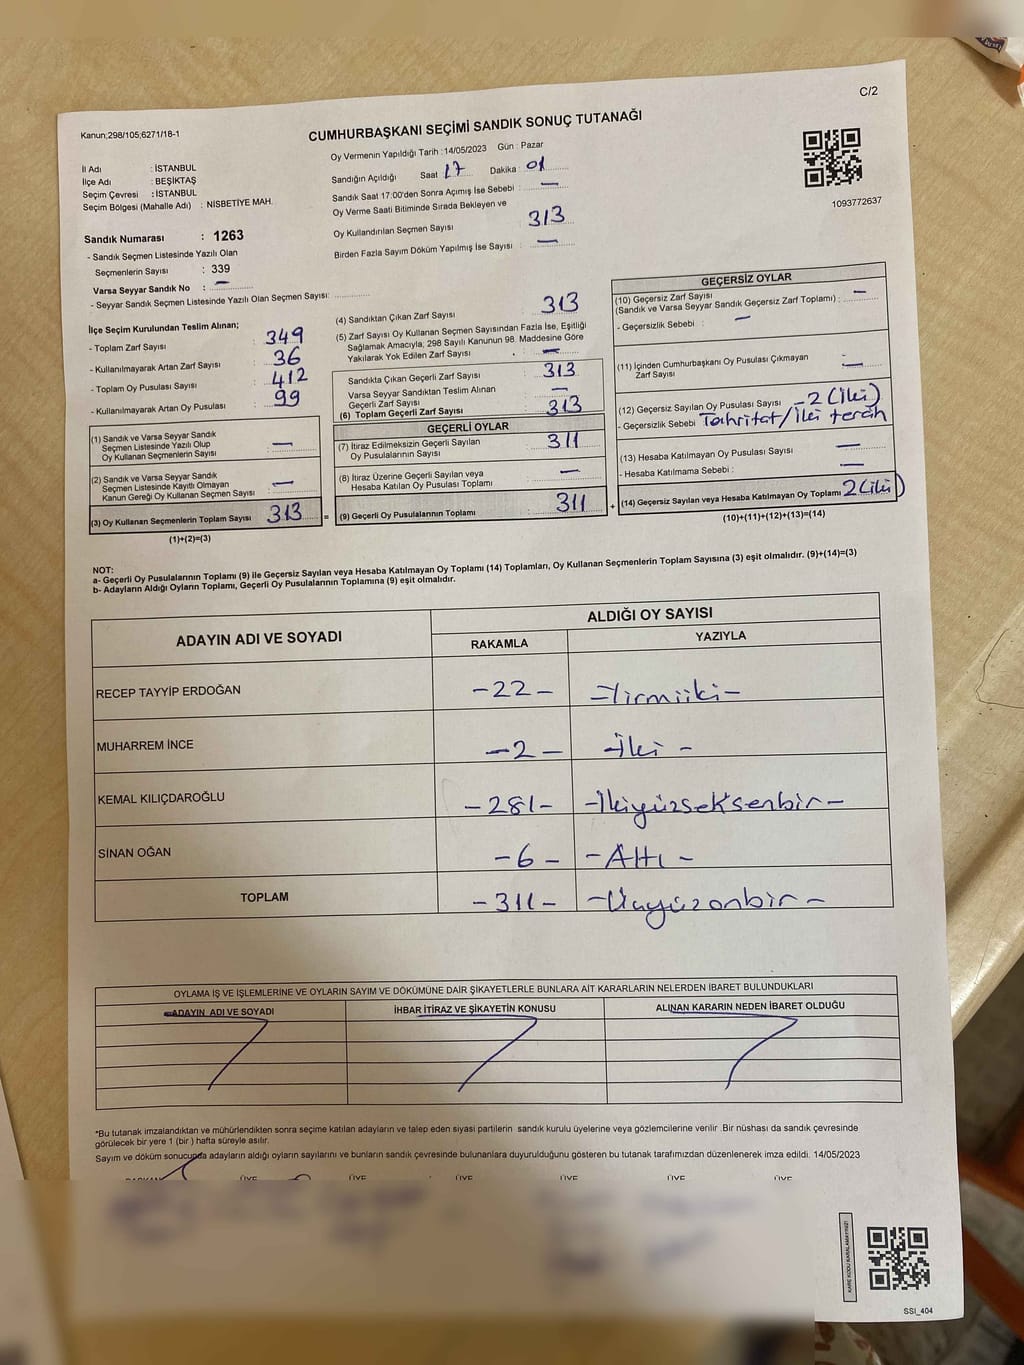 C/2
Kanun;298/105;6271/18-1
CUMHURBAŞKANI SEÇİMİ SANDIK SONUÇ TUTANAĞI
Oy Vermenin Yapıldığı Tarih : 14/05/2023 Gün : Pazar
Sandığın Açıldığı Saat 17 Dakika : 01
Sandık Saat 17:00'den Sonra Açımış İse Sebebi : —
Oy Verme Saati Bitiminde Sırada Bekleyen ve
Oy Kullandırılan Seçmen Sayısı : 313
Birden Fazla Sayım Döküm Yapılmış İse Sayısı : —
İl Adı : İSTANBUL
İlçe Adı : BEŞİKTAŞ
Seçim Çevresi : İSTANBUL
Seçim Bölgesi (Mahalle Adı) : NİSBETİYE MAH.
1093772637
Sandık Numarası : 1263
- Sandık Seçmen Listesinde Yazılı Olan
Seçmenlerin Sayısı : 339
Varsa Seyyar Sandık No : —
- Seyyar Sandık Seçmen Listesinde Yazılı Olan Seçmen Sayısı:
İlçe Seçim Kurulundan Teslim Alınan;
- Toplam Zarf Sayısı : 349
- Kullanılmayarak Artan Zarf Sayısı : 36
- Toplam Oy Pusulası Sayısı : 412
- Kullanılmayarak Artan Oy Pusulası : 99
(1) Sandık ve Varsa Seyyar Sandık
Seçmen Listesinde Yazılı Olup
Oy Kullanan Seçmenlerin Sayısı : —
(2) Sandık ve Varsa Seyyar Sandık
Seçmen Listesinde Kayıtlı Olmayan
Kanun Gereği Oy Kullanan Seçmen Sayısı : —
(3) Oy Kullanan Seçmenlerin Toplam Sayısı 313 =
(1)+(2)=(3)
(4) Sandıktan Çıkan Zarf Sayısı : 313
(5) Zarf Sayısı Oy Kullanan Seçmen Sayısından Fazla İse, Eşitliği
Sağlamak Amacıyla; 298 Sayılı Kanunun 98. Maddesine Göre
Yakılarak Yok Edilen Zarf Sayısı : —
Sandıkta Çıkan Geçerli Zarf Sayısı : 313
Varsa Seyyar Sandıktan Teslim Alınan
Geçerli Zarf Sayısı : —
(6) Toplam Geçerli Zarf Sayısı : 313
GEÇERLİ OYLAR
(7) İtiraz Edilmeksizin Geçerli Sayılan
Oy Pusulalarının Sayısı : 311
(8) İtiraz Üzerine Geçerli Sayılan veya
Hesaba Katılan Oy Pusulası Toplamı : —
(9) Geçerli Oy Pusulalarının Toplamı : 311 +
GEÇERSİZ OYLAR
(10) Geçersiz Zarf Sayısı
(Sandık ve Varsa Seyyar Sandık Geçersiz Zarf Toplamı) : —
- Geçersizlik Sebebi : —
(11) İçinden Cumhurbaşkanı Oy Pusulası Çıkmayan
Zarf Sayısı : —
(12) Geçersiz Sayılan Oy Pusulası Sayısı – 2 (iki)
- Geçersizlik Sebebi Tahritat/İki tercih
(13) Hesaba Katılmayan Oy Pusulası Sayısı —
- Hesaba Katılmama Sebebi : —
(14) Geçersiz Sayılan veya Hesaba Katılmayan Oy Toplamı 2 (iki)
(10)+(11)+(12)+(13)=(14)
NOT:
a- Geçerli Oy Pusulalarının Toplamı (9) ile Geçersiz Sayılan veya Hesaba Katılmayan Oy Toplamı (14) Toplamları, Oy Kullanan Seçmenlerin Toplam Sayısına (3) eşit olmalıdır. (9)+(14)=(3)
b- Adayların Aldığı Oyların Toplamı, Geçerli Oy Pusulalarının Toplamına (9) eşit olmalıdır.
ADAYIN ADI VE SOYADI
ALDIĞI OY SAYISI
RAKAMLA YAZIYLA
RECEP TAYYİP ERDOĞAN -22- -Yirmiiki-
MUHARREM İNCE -2- -İki-
KEMAL KILIÇDAROĞLU -281- -İkiyüzseksenbir-
SİNAN OĞAN -6- -Altı-
TOPLAM -311- -Üçyüzonbir-
OYLAMA İŞ VE İŞLEMLERİNE VE OYLARIN SAYIM VE DÖKÜMÜNE DAİR ŞİKAYETLERLE BUNLARA AİT KARARLARIN NELERDEN İBARET BULUNDUKLARI
ADAYIN ADI VE SOYADI İHBAR İTİRAZ VE ŞİKAYETİN KONUSU ALINAN KARARIN NEDEN İBARET OLDUĞU
*Bu tutanak imzalandıktan ve mühürlendikten sonra seçime katılan adayların ve talep eden siyasi partilerin sandık kurulu üyelerine veya gözlemcilerine verilir. Bir nüshası da sandık çevresinde
görülecek bir yere 1 (bir ) hafta süreyle asılır.
Sayım ve döküm sonucunda adayların aldığı oyların sayılarını ve bunların sandık çevresinde bulunanlara duyurulduğunu gösteren bu tutanak tarafımızdan düzenlenerek imza edildi. 14/05/2023
BAŞKAN ÜYE ÜYE ÜYE ÜYE ÜYE ÜYE
KARE KODU KARALAMAYINIZ!
SSI_404